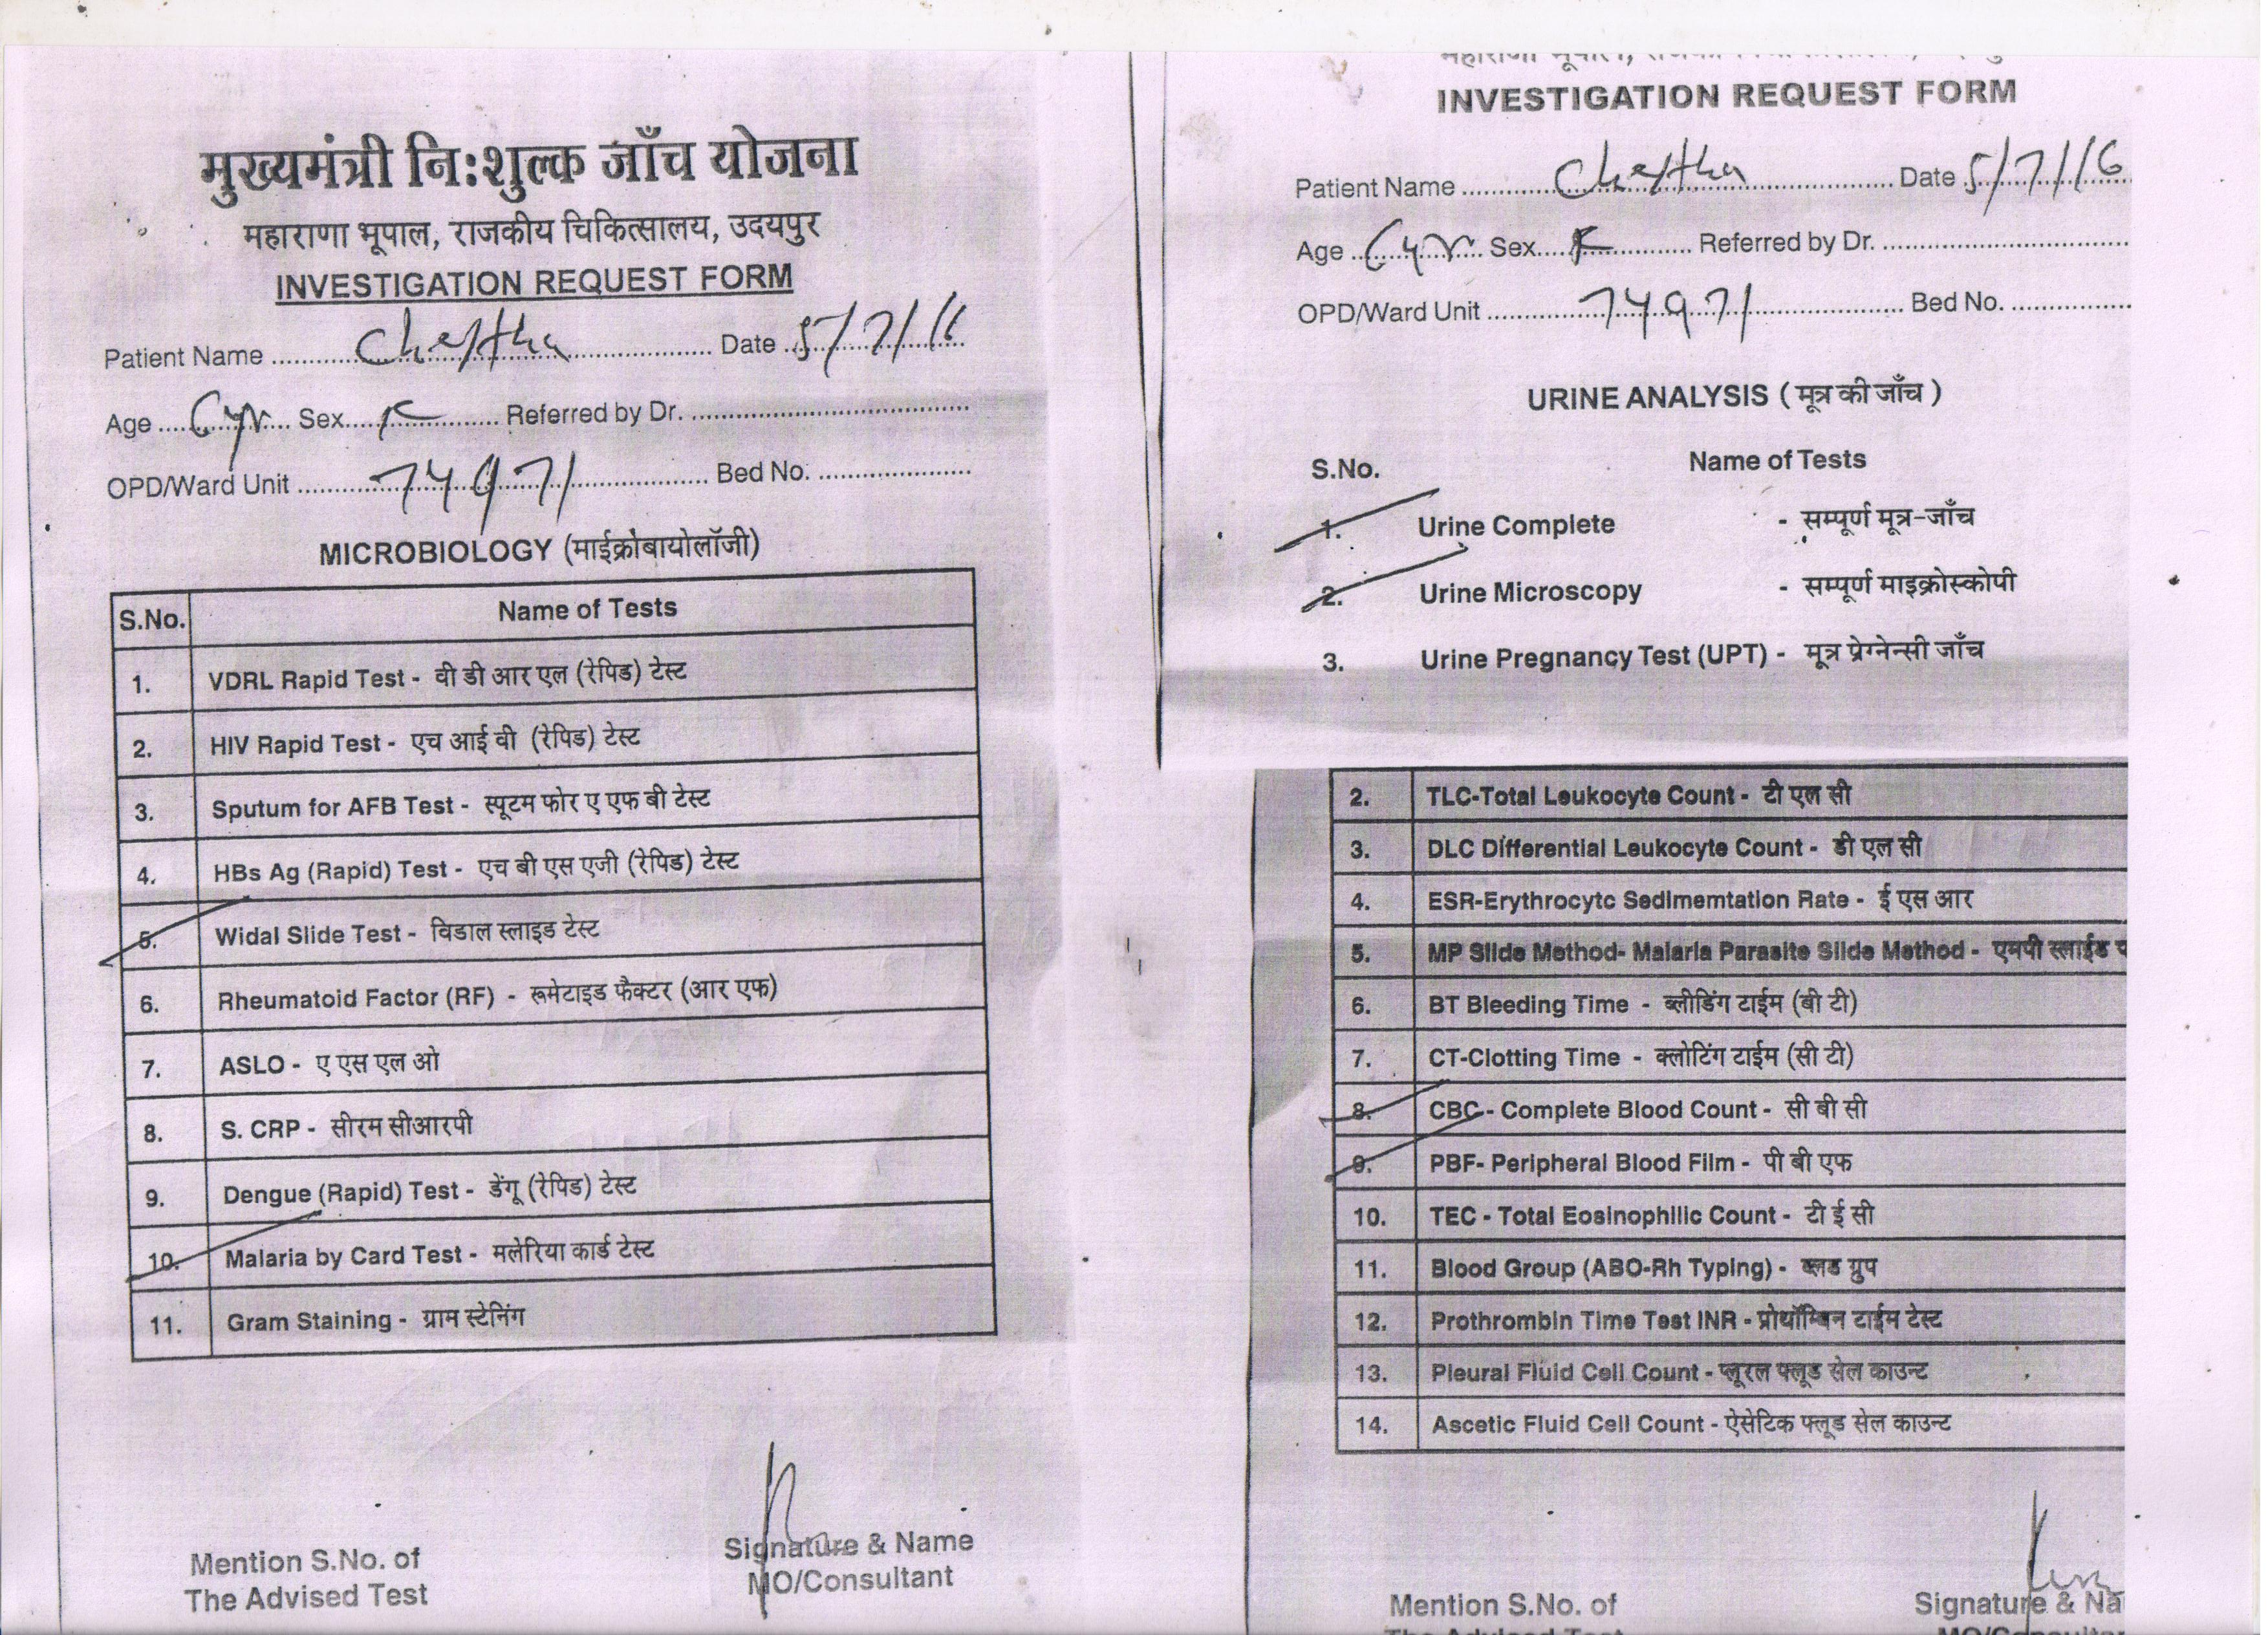 मुख्यमंत्री नि:शुल्क जाँच योजना
महाराणा भूपाल, राजकीय चिकित्सालय, उदयपुर
INVESTIGATION REQUEST FORM
Patient Name ........ Date 5/7/16
Age 6yr Sex F Referred by Dr. ........
OPD/Ward Unit 74971 Bed No. ........
MICROBIOLOGY (माईक्रोबायोलॉजी)
S.No. Name of Tests
1. VDRL Rapid Test - वी डी आर एल (रेपिड) टेस्ट
2. HIV Rapid Test - एच आई वी (रेपिड) टेस्ट
3. Sputum for AFB Test - स्पूटम फोर ए एफ बी टेस्ट
4. HBs Ag (Rapid) Test - एच बी एस एजी (रेपिड) टेस्ट
5. Widal Slide Test - विडाल स्लाइड टेस्ट
6. Rheumatoid Factor (RF) - रूमेटाइड फैक्टर (आर एफ)
7. ASLO - ए एस एल ओ
8. S. CRP - सीरम सीआरपी
9. Dengue (Rapid) Test - डेंगू (रेपिड) टेस्ट
10. Malaria by Card Test - मलेरिया कार्ड टेस्ट
11. Gram Staining - ग्राम स्टेनिंग
Mention S.No. of
The Advised Test
Signature & Name
MO/Consultant
महाराणा भूपाल,
INVESTIGATION REQUEST FORM
Patient Name ........ Date 5/7/16
Age 6yr Sex F Referred by Dr. ........
OPD/Ward Unit 74971 Bed No. ........
URINE ANALYSIS ( मूत्र की जाँच )
S.No. Name of Tests
1. Urine Complete - सम्पूर्ण मूत्र-जाँच
2. Urine Microscopy - सम्पूर्ण माइक्रोस्कोपी
3. Urine Pregnancy Test (UPT) - मूत्र प्रेग्नेन्सी जाँच
2. TLC-Total Leukocyte Count - टी एल सी
3. DLC Differential Leukocyte Count - डी एल सी
4. ESR-Erythrocytc Sedimemtation Rate - ई एस आर
5. MP Slide Method- Malaria Parasite Slide Method - एमपी स्लाईड
6. BT Bleeding Time - ब्लीडिंग टाईम (बी टी)
7. CT-Clotting Time - क्लोटिंग टाईम (सी टी)
8. CBC - Complete Blood Count - सी बी सी
9. PBF- Peripheral Blood Film - पी बी एफ
10. TEC - Total Eosinophilic Count - टी ई सी
11. Blood Group (ABO-Rh Typing) - ब्लड ग्रुप
12. Prothrombin Time Test INR - प्रोथॉम्बिन टाईम टेस्ट
13. Pleural Fluid Cell Count - प्लूरल फ्लूड सेल काउन्ट
14. Ascetic Fluid Cell Count - ऐसेटिक फ्लूड सेल काउन्ट
Mention S.No. of
The Advised Test
Signature & Na
MO/Consultan